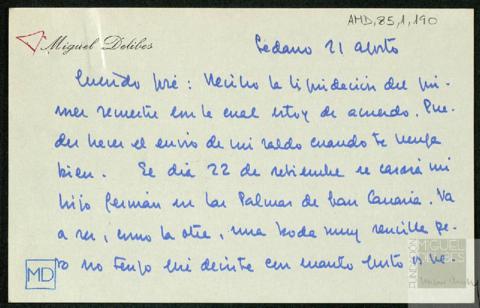 AMD, 85, 1, 190
Miguel Delibes
Sedano 21 agosto
Querido José: Recibo la liquidación del pri-
mer semestre con la cual estoy de acuerdo. Pue-
des hacer el envío de mi saldo cuando te venga
bien. El día 22 de setiembre se casará mi
hijo Germán en Las Palmas de Gran Canaria. Va
a ser, como la otra, una boda muy sencilla pe-
ro no tengo que decirte con cuanto gusto os ve-
MD
FUNDACIÓN
MIGUEL
DELIBES